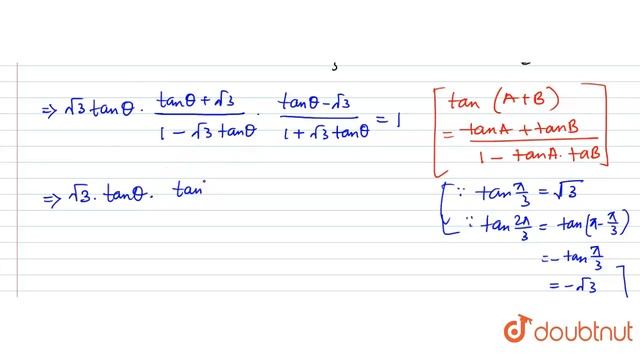 ⇒ √3 tanθ · (tanθ + √3)/(1 − √3 tanθ) · (tanθ − √3)/(1 + √3 tanθ) = 1
⇒ √3 · tanθ · tan
[tan (A+B)
= (tanA + tanB)/(1 − tanA · taB)]
[∵ tan π/3 = √3
∵ tan 2π/3 = tan(π − π/3)
= − tan π/3
= − √3]
doubtnut